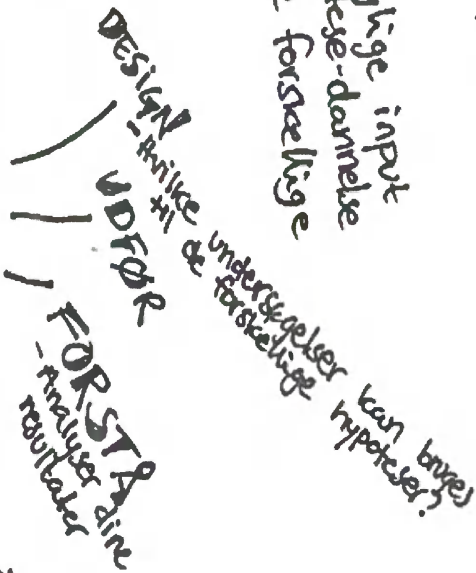 input
forskellige
DESIGN
-Hvilke undersøgelser kan bruges
til de forskellige hypoteser?
UDFØR
FORSTÅ
-Analyser dine
resultater